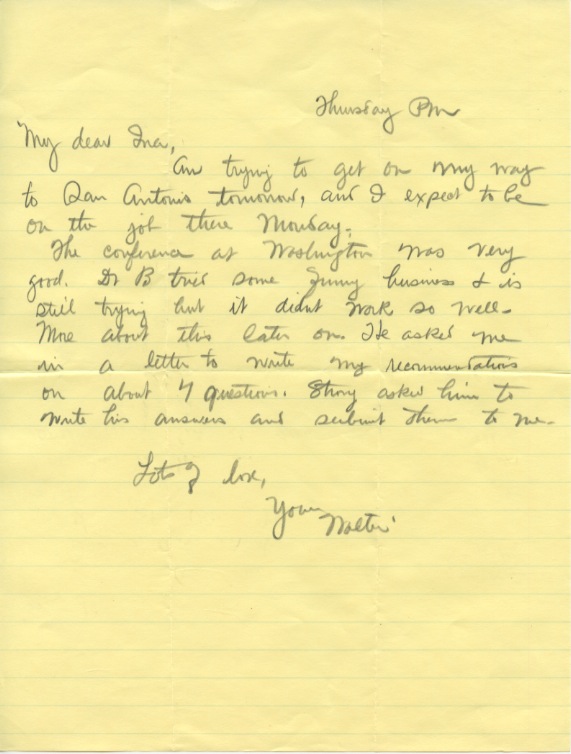 Thursday Pm
My dear Ina,
Am trying to get on my way
to San Antonio tomorrow, and I expect to be
on the job there Monday.
The conference at Washington was very
good. Dr B tried some funny business & is
still trying but it didnt work so well.
More about this later on. He asked me
in a letter to write my recommendations
on about 7 questions. Strong asked him to
write his answers and submit them to me.
Lots of love,
Your
Walter